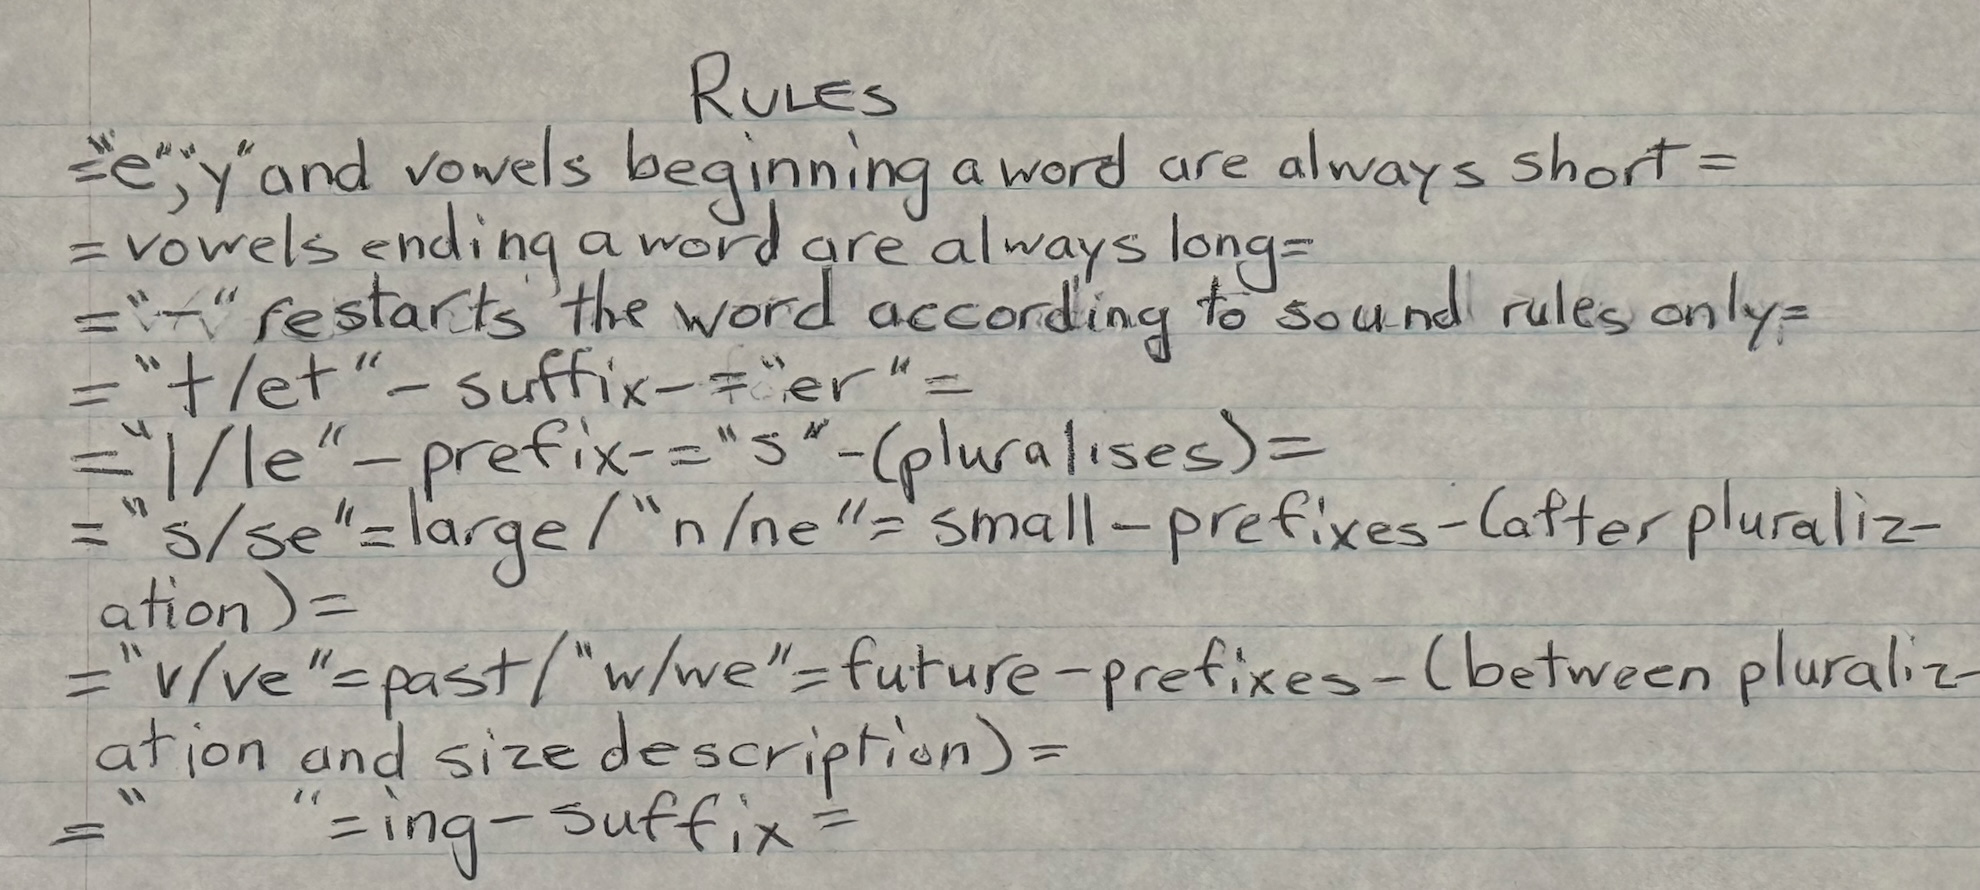 RULES
="e","y" and vowels beginning a word are always short=
=vowels ending a word are always long=
="-" restarts the word according to sound rules only=
="t/et"-suffix-="er"=
="l/le"-prefix-="s"-(pluralises)=
="s/se"=large/"n/ne"=small-prefixes-(after pluraliz-
ation)=
="v/ve"=past/"w/we"=future-prefixes-(between pluraliz-
ation and size description)=
="    "=ing-suffix=